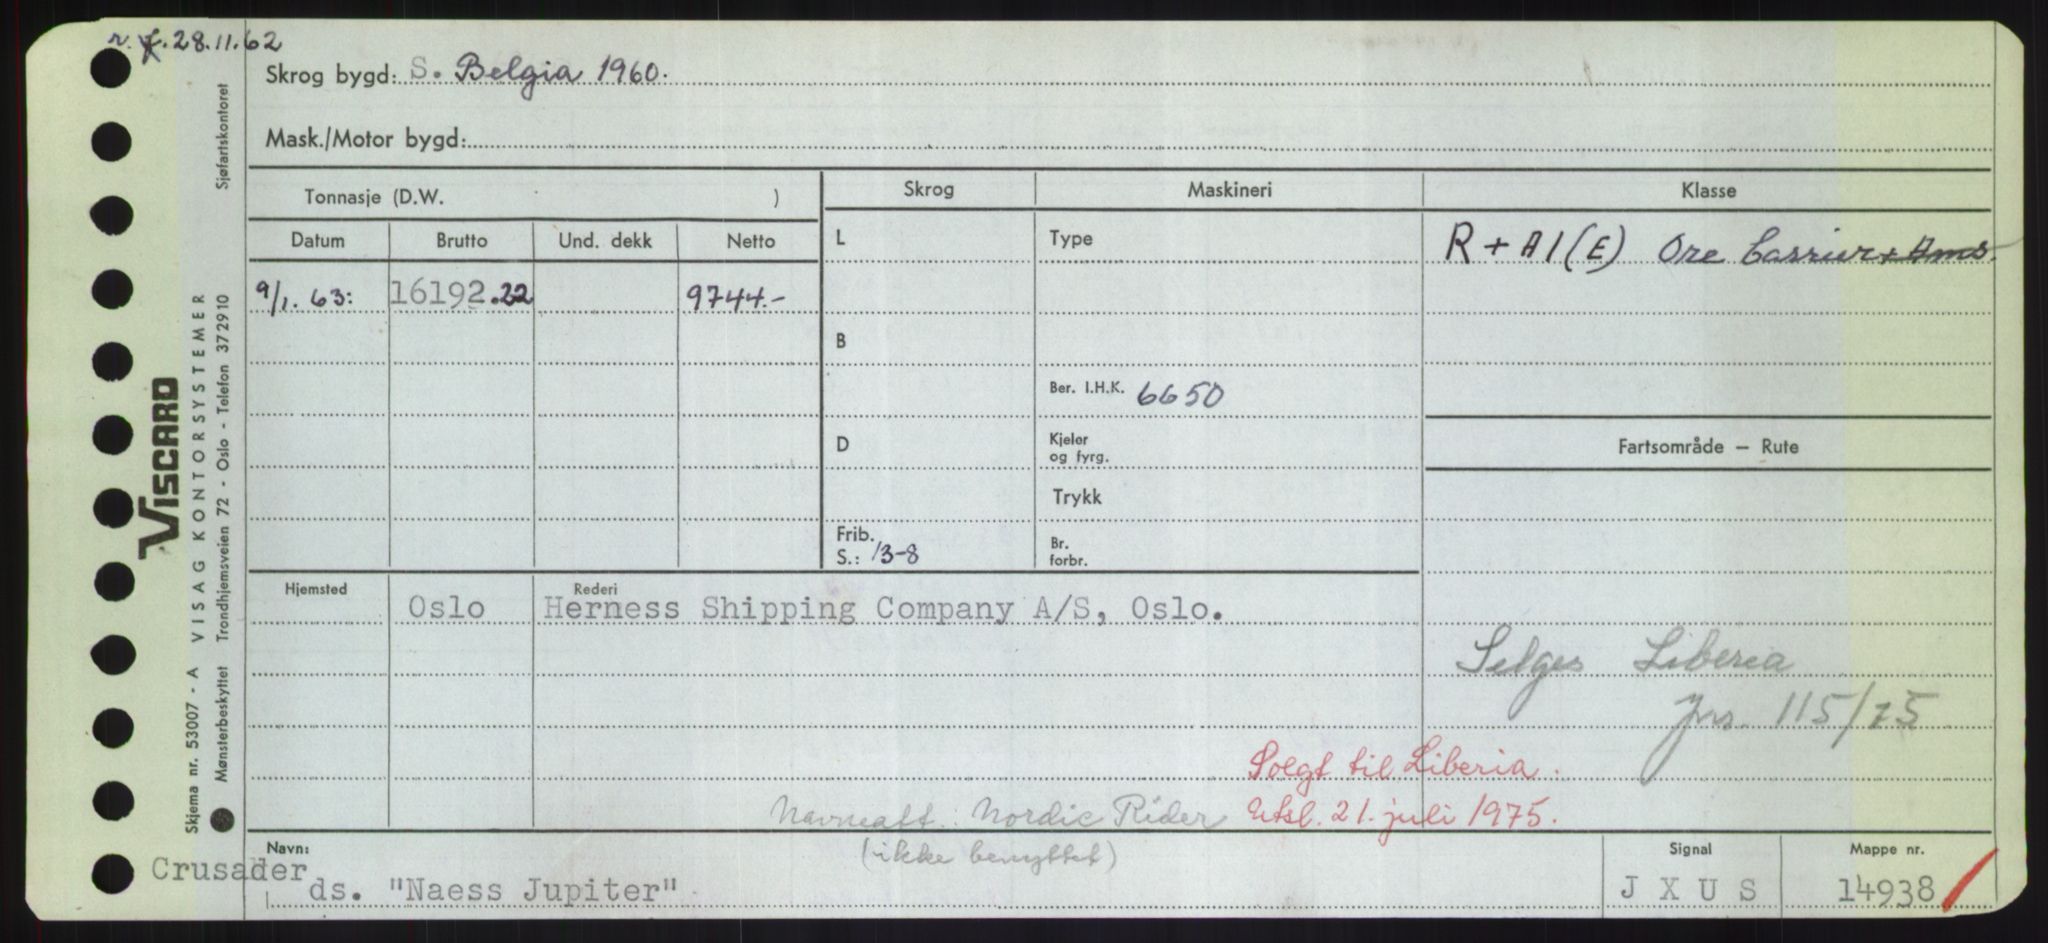 r. f. 28.11.62
Skrog bygd: S. Belgia 1960.
Mask./Motor bygd:
Tonnasje (D.W. )
Skrog
Maskineri
Klasse
Datum Brutto Und. dekk Netto
L
Type
R + A1 (E) Ore Carrier + Ams.
9/1. 63: 16192.22 9744.-
B
Ber. I.H.K. 6650
D
Kjeler og fyrg.
Fartsområde — Rute
Trykk
Frib.
S.: 13-8
Br. forbr.
Hjemsted Rederi
Oslo Herness Shipping Company A/S, Oslo.
Selges Liberia
Jnr. 115/75
Solgt til Liberia.
Navnealt. Nordic Rider Utsl. 21. juli 1975.
(ikke benyttet)
Navn:
Crusader
ds. "Naess Jupiter"
Signal
J X U S
Mappe nr.
14938
VISCARD
Skjema nr. 53007 - A VISAG KONTORSYSTEMER Sjøfartskontoret
Mønsterbeskyttet Trondhjemsveien 72 - Oslo - Telefon 372910